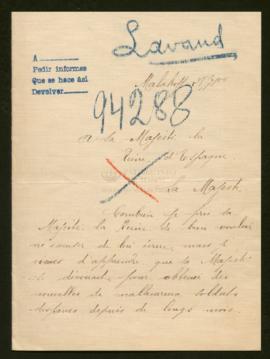 Lavaud
A
Pedir informes
Que se hace así
Devolver
Malakoff
94288
A sa Majesté la
Reine d'Espagne
Sa Majesté
Combien je prie Sa
Majesté la Reine de bien vouloir
m'excuser de lui écrire, mais je
viens d'apprendre que Sa Majesté
se dévouait pour obtenir des
nouvelles de malheureux soldats
disparus depuis de longs mois.